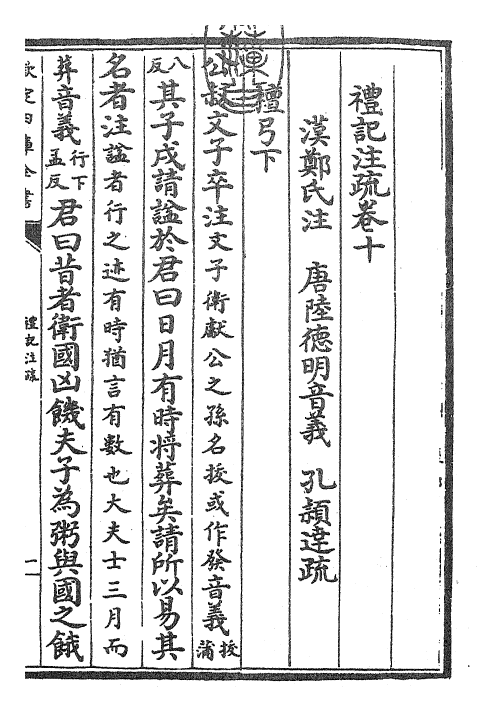 禮記注疏卷十
漢鄭氏注　唐陸德明音義　孔穎達疏
檀弓下
公叔文子卒注文子衛獻公之孫名拔或作發音義拔蒲
八反其子戍請諡於君曰日月有時將葬矣請所以易其
名者注諡者行之迹有時猶言有數也大夫士三月而
葬音義行下孟反君曰昔者衛國凶饑夫子為粥與國之餓
欽定四庫全書
禮記注疏
一